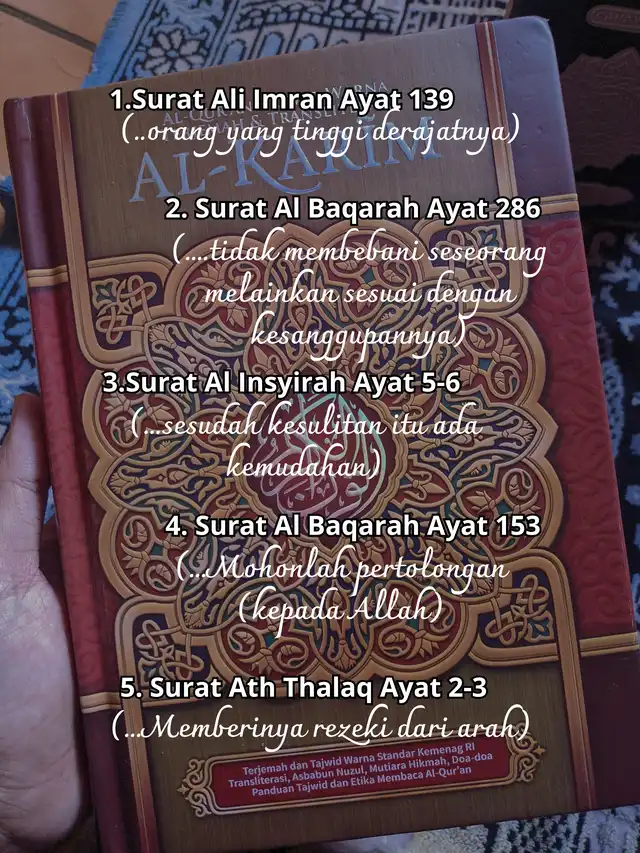 1.Surat Ali Imran Ayat 139
(..orang yang tinggi derajatnya)
AL-QUR'AN WARNA
& TRANSLITERASI
AL-KARIM
2. Surat Al Baqarah Ayat 286
(....tidak membebani seseorang
melainkan sesuai dengan
kesanggupannya)
3.Surat Al Insyirah Ayat 5-6
(...sesudah kesulitan itu ada
kemudahan)
4. Surat Al Baqarah Ayat 153
(...Mohonlah pertolongan
(kepada Allah)
5. Surat Ath Thalaq Ayat 2-3
(...Memberinya rezeki dari arah)
Terjemah dan Tajwid Warna Standar Kemenag RI
Transliterasi, Asbabun Nuzul, Mutiara Hikmah, Doa-doa
Panduan Tajwid dan Etika Membaca Al-Qur'an